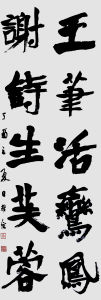 王筆活鸞鳳
謝詩生芙蓉
丁酉之夏